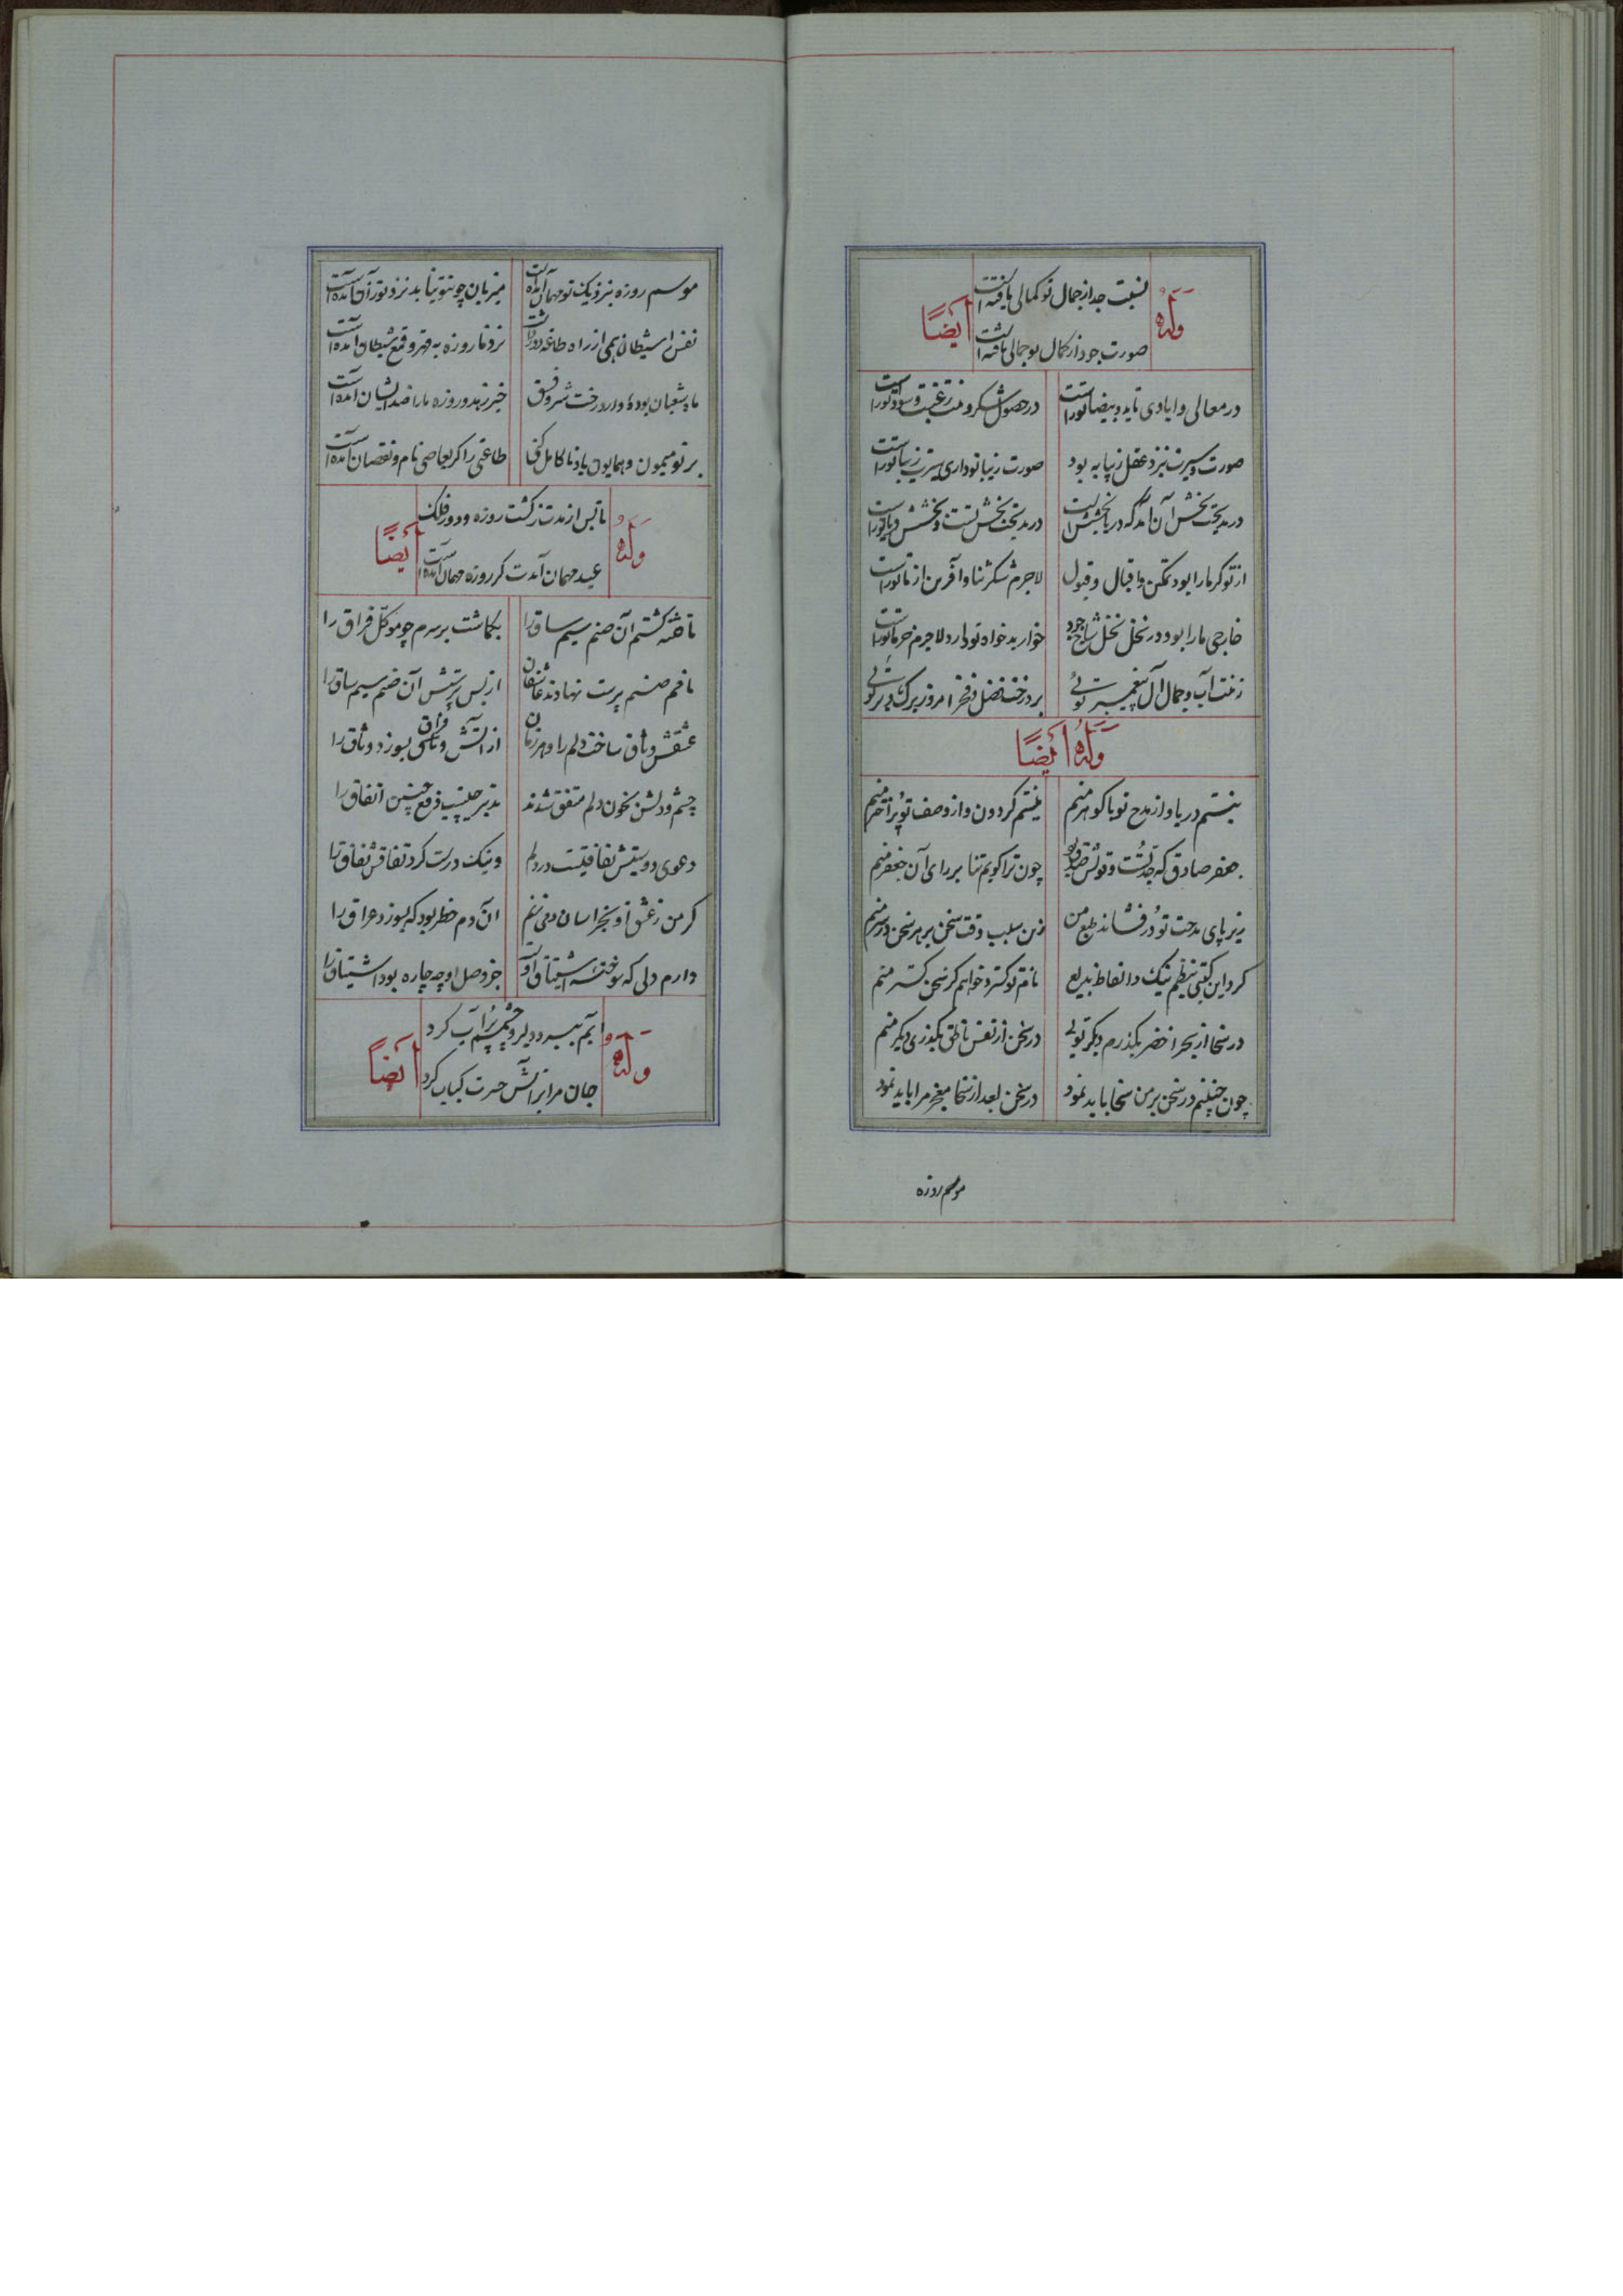 وله
نسبت جد از جمال تو کمالی یافته است
ایضاً
صورت جود از کمال تو جمالی یافته است
در معالی و ایادی تا ید و بیضا تراست
در حصول شکر و منت رغبت و سودا تراست
صورت و سیرت بنزد عقل زیبا به بود
صورت زیبا تو داری سیرت زیبا تراست
در مدیحت بخش آن آمد که دریا بخشش است
از تو گر ما را بود تمکین و اقبال و قبول
لاجرم شکر و ثنا و آفرین از ما تراست
خار بدخواه تو دارد لاجرم خرما تراست
زینت آب و جمال آل پیغمبر توئی
بر درخت فضل و فخر امروز برگ و بر توئی
وله ایضاً
نیستم دریا و از مدح تو با گوهر منم
نیستم گردون و از وصف تو پر اختر منم
جعفر صادق که جد تست
چون ترا گویم ثنا بر رای آن جعفر منم
زیر پای مدحت تو در فشاند طبع من
زین سبب وقت سخن بر هر سخن سرور منم
کرد این گیتی بنظم نیک و الفاظ بدیع
نام تو گسترد خواهم گر سخن گستر منم
در سخا از بحر اخضر بگذرم دیگر توئی
در سخن از نفس ناطق بگذری دیگر منم
چون چنینم در سخن بر من سخا باید نمود
در سخن بعد از سخا معجز مرا باید نمود
موسم روزه
موسم روزه بنزدیک تو مهمان آمده است
میزبان چون تو نیابد نزد تو زان آمده است
نفس را شیطان همی از راه طاعت دور داشت
نزد ما روزه به قهر و قمع شیطان آمده است
ماه شعبان بوده دارد رخت شر و فسق
بر تو میمون و همایون باد تا کامل کنی
طاعتی را کز معاصی نام و نقصان آمده است
وله
تا پس از مدت گشت روزه و دور فلک
ایضاً
عید مهمان آیدت گر روزه مهمان آمده است
تا فتنه گشتم آن صنم سیم ساق را
بگماشت بر سرم چو موکل فراق را
نامم صنم پرست نهادند عاشقان
از بس پرستش آن صنم سیم ساق را
عشقش وثاق ساخت دلم را و هر زمان
از آتش فراق بسوزد وثاق را
چشم و دلش بخون دلم متفق شدند
تدبیر چیست دفع چنین اتفاق را
دعوی دوستیش نفاقیست در دلم
و نیک درست کرد نفاقش نفاق را
گر من ز عشق او بخراسان دمی زنم
آن دم خطر بود که بسوزد عراق را
دارم دلی که سوخته اشتیاق اوست
جز وصل او چه چاره بود اشتیاق را
وله
یارم ببرد دل و چشم پر آب کرد
ایضاً
جان مرا بر آتش حسرت کباب کرد